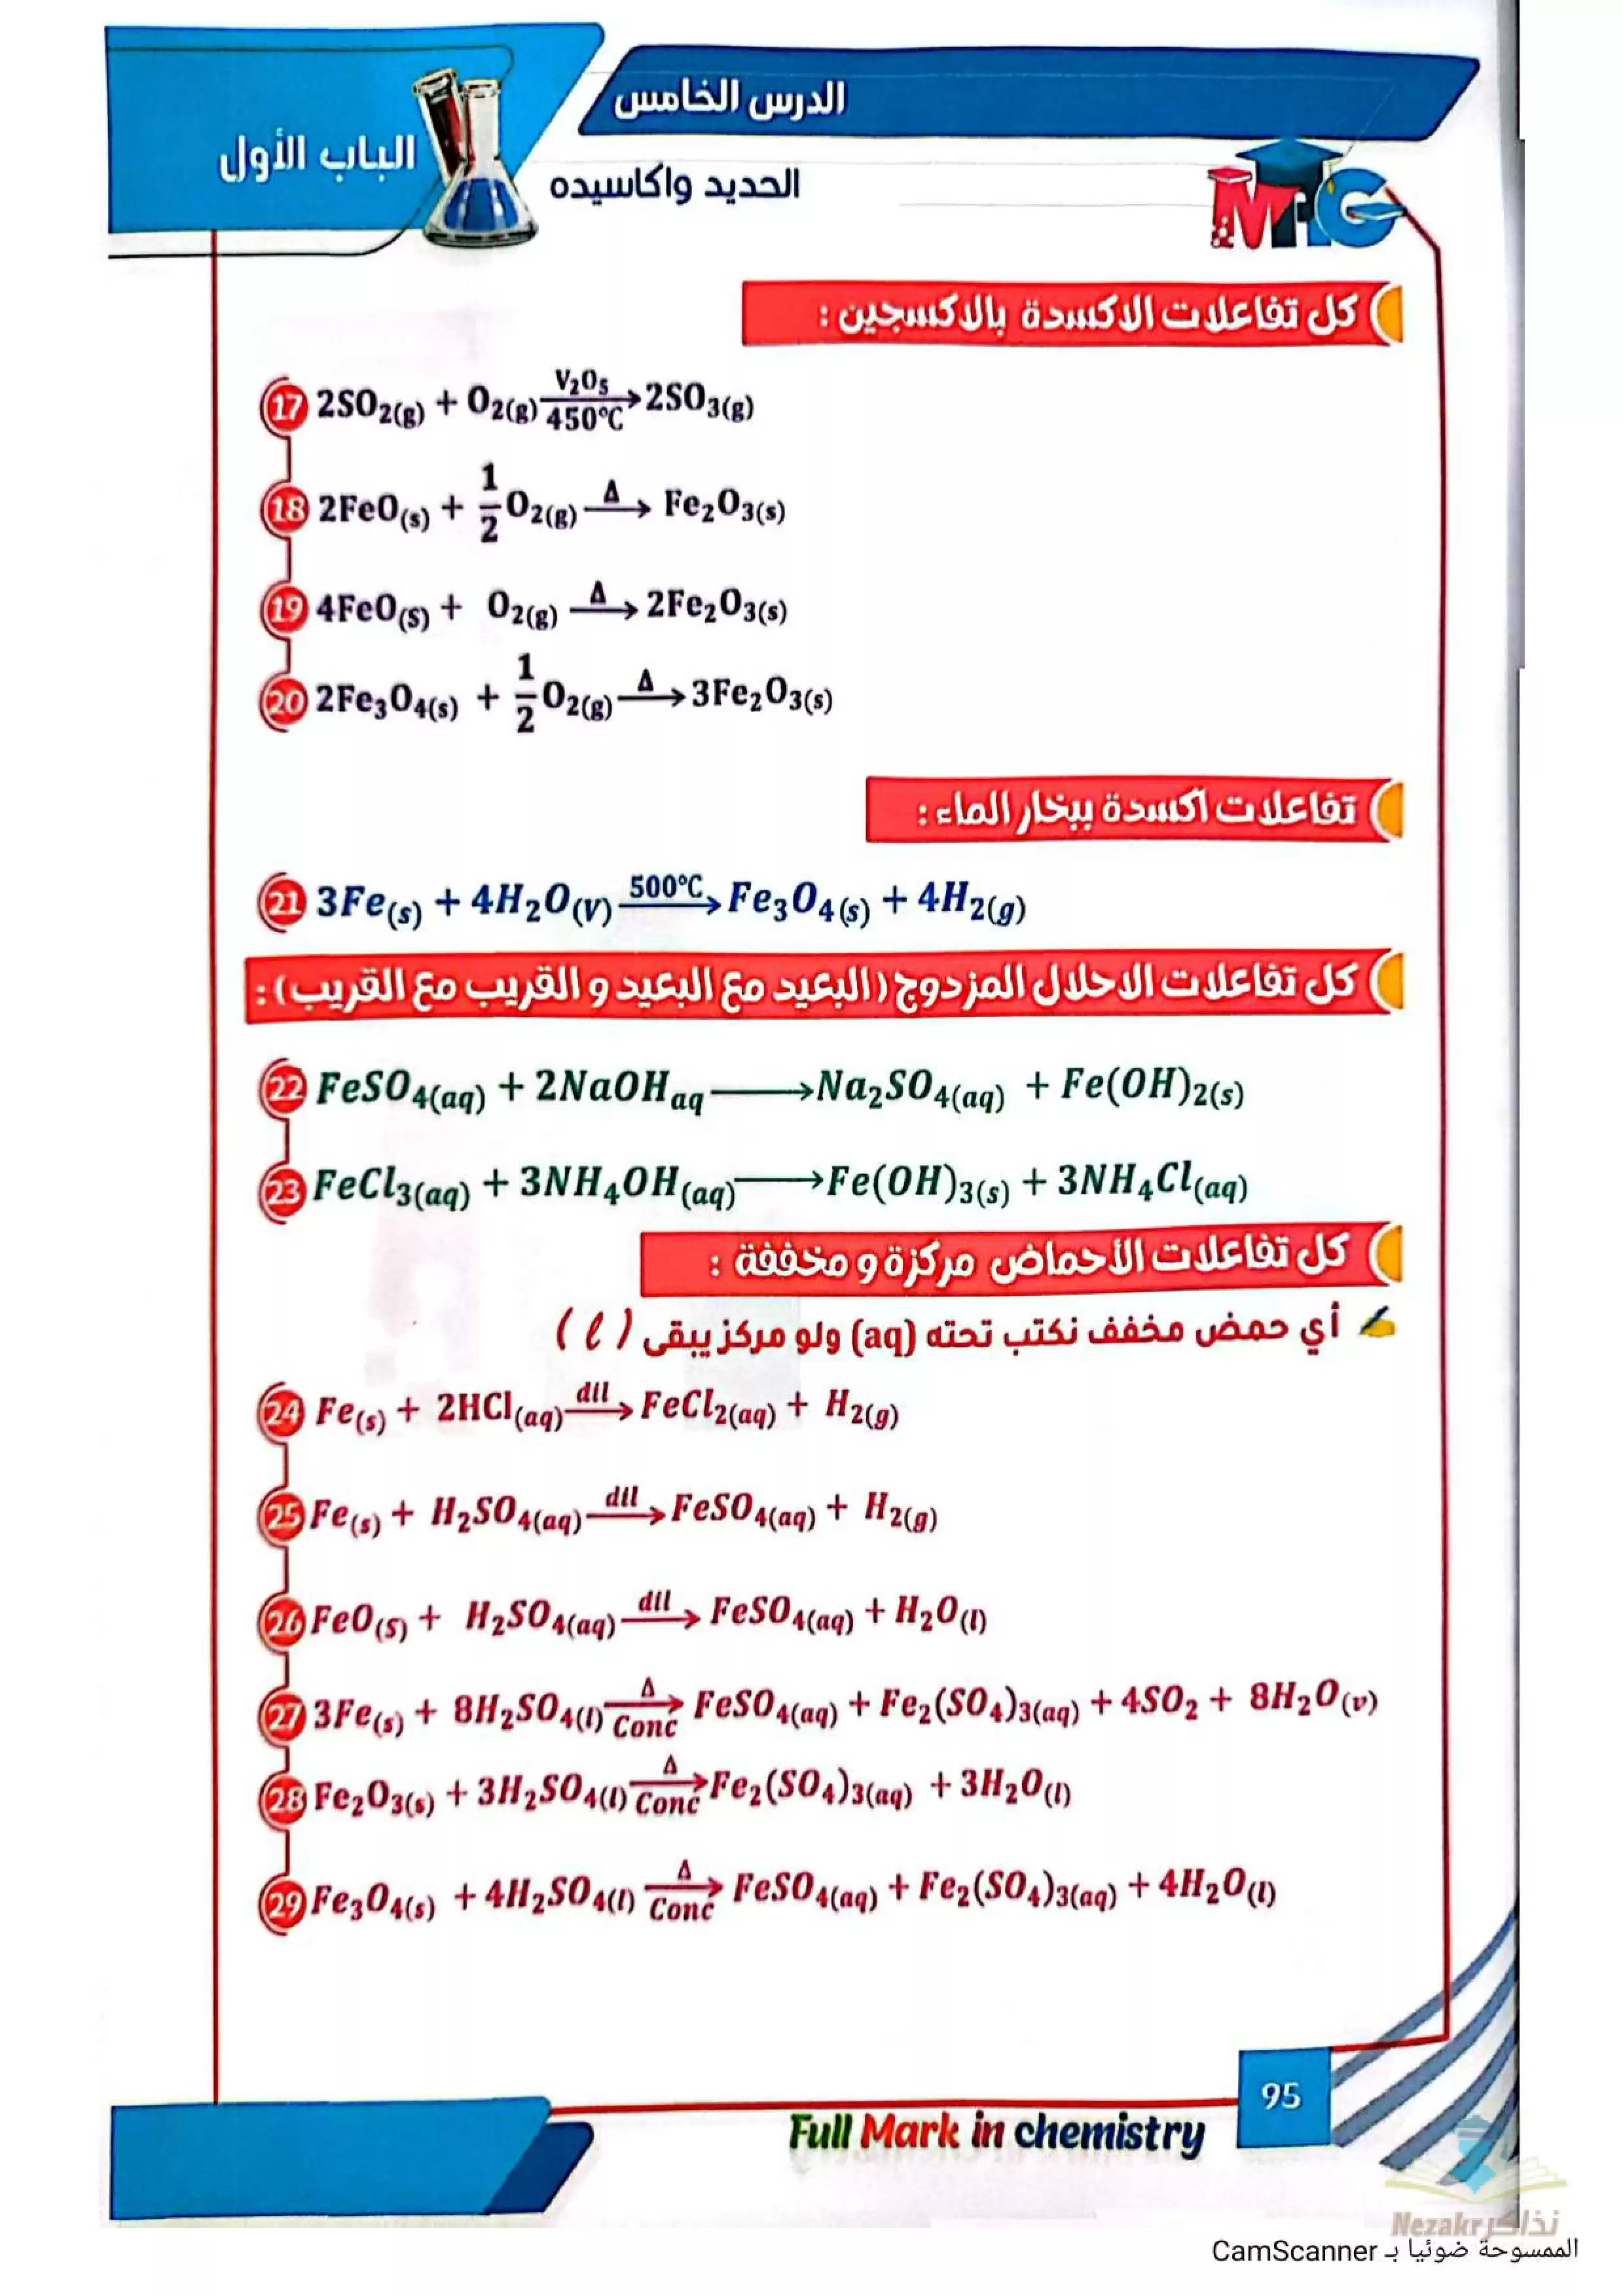 الدرس الخامس
الباب الأول
الحديد واكاسيده
MrG
كل تفاعلات الاكسدة بالاكسجين :
17 2SO₂(g) + O₂(g) V₂O₅ 450°C → 2SO₃(g)
18 2FeO(s) + 1/2 O₂(g) Δ → Fe₂O₃(s)
19 4FeO(S) + O₂(g) Δ → 2Fe₂O₃(s)
20 2Fe₃O₄(s) + 1/2 O₂(g) Δ → 3Fe₂O₃(s)
تفاعلات اكسدة ببخار الماء :
21 3Fe(s) + 4H₂O(V) 500°C → Fe₃O₄(s) + 4H₂(g)
كل تفاعلات الاحلال المزدوج (البعيد مع البعيد و القريب مع القريب) :
22 FeSO₄(aq) + 2NaOH aq → Na₂SO₄(aq) + Fe(OH)₂(s)
23 FeCl₃(aq) + 3NH₄OH(aq) → Fe(OH)₃(s) + 3NH₄Cl(aq)
كل تفاعلات الأحماض مركزة و مخففة :
أي حمض مخفف نكتب تحته (aq) ولو مركز يبقى (ℓ)
24 Fe(s) + 2HCl(aq) dil → FeCl₂(aq) + H₂(g)
25 Fe(s) + H₂SO₄(aq) dil → FeSO₄(aq) + H₂(g)
26 FeO(S) + H₂SO₄(aq) dil → FeSO₄(aq) + H₂O(l)
27 3Fe(s) + 8H₂SO₄(l) Δ Conc → FeSO₄(aq) + Fe₂(SO₄)₃(aq) + 4SO₂ + 8H₂O(v)
28 Fe₂O₃(s) + 3H₂SO₄(l) Δ Conc → Fe₂(SO₄)₃(aq) + 3H₂O(l)
29 Fe₃O₄(s) + 4H₂SO₄(l) Δ Conc → FeSO₄(aq) + Fe₂(SO₄)₃(aq) + 4H₂O(l)
95
Full Mark in chemistry
Nezakr نذاكر
الممسوحة ضوئيا بـ CamScanner